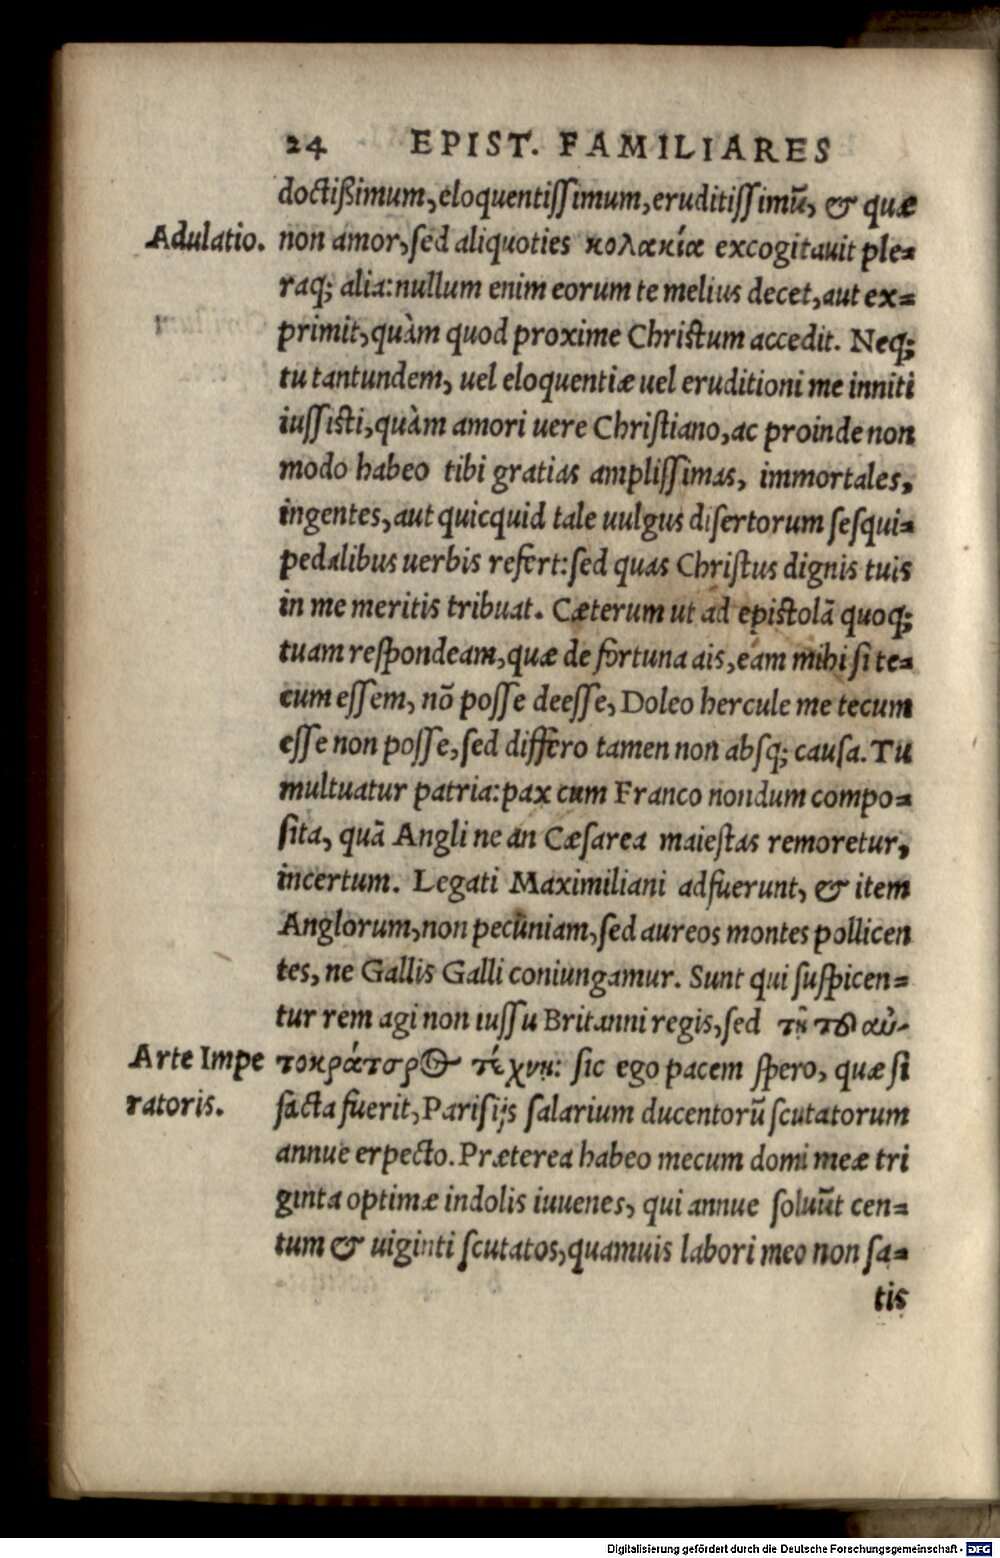 24 EPIST. FAMILIARES
doctißimum, eloquentissimum, eruditissimū, & quæ
Adulatio. non amor, sed aliquoties κολακία excogitauit ple-
raq; alia: nullum enim eorum te melius decet, aut ex-
primit, quàm quod proxime Christum accedit. Neq;
tu tantundem, uel eloquentiæ uel eruditioni me inniti
iussisti, quàm amori uere Christiano, ac proinde non
modo habeo tibi gratias amplissimas, immortales,
ingentes, aut quicquid tale uulgus disertorum sesqui-
pedalibus uerbis refert: sed quas Christus dignis tuis
in me meritis tribuat. Cæterum ut ad epistolā quoq;
tuam respondeam, quæ de fortuna ais, eam mihi si te-
cum essem, nō posse deesse, Doleo hercule me tecum
esse non posse, sed differo tamen non absq; causa. Tu
multuatur patria: pax cum Franco nondum compo-
sita, quā Angli ne an Cæsarea maiestas remoretur,
incertum. Legati Maximiliani adfuerunt, & item
Anglorum, non pecūniam, sed aureos montes pollicen
tes, ne Gallis Galli coniungamur. Sunt qui suspicen-
tur rem agi non iussu Britanni regis, sed τῇ τοῦ αὐ-
Arte Impe τοκράτορος τέχνῃ: sic ego pacem spero, quæ si
ratoris. facta fuerit, Parisijs salarium ducentorū scutatorum
annue erpecto. Præterea habeo mecum domi meæ tri
ginta optimæ indolis iuuenes, qui annue soluūt cen-
tum & uiginti scutatos, quamuis labori meo non sa-
tis
Digitalisierung gefördert durch die Deutsche Forschungsgemeinschaft - DFG